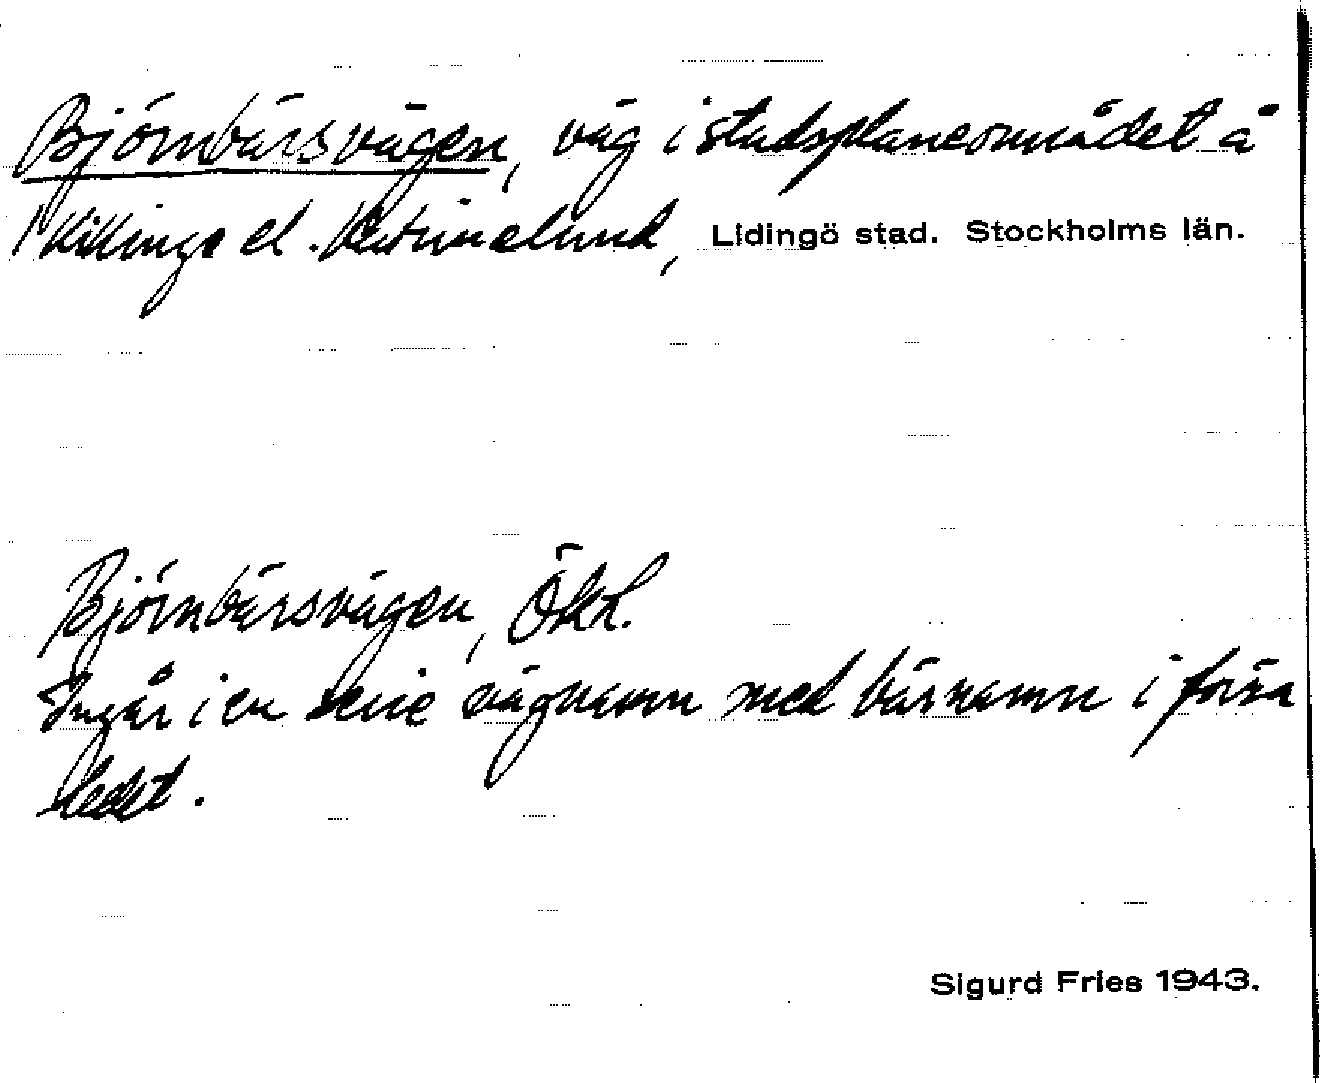 Björnbärsvägen, väg i stadsplaneområdet å
Killinge el. Katrinelund, Lidingö stad. Stockholms län.
Björnbärsvägen, Ökd.
Ingår i en serie vägnamn med bärnamn i förra
ledet.
Sigurd Fries 1943.